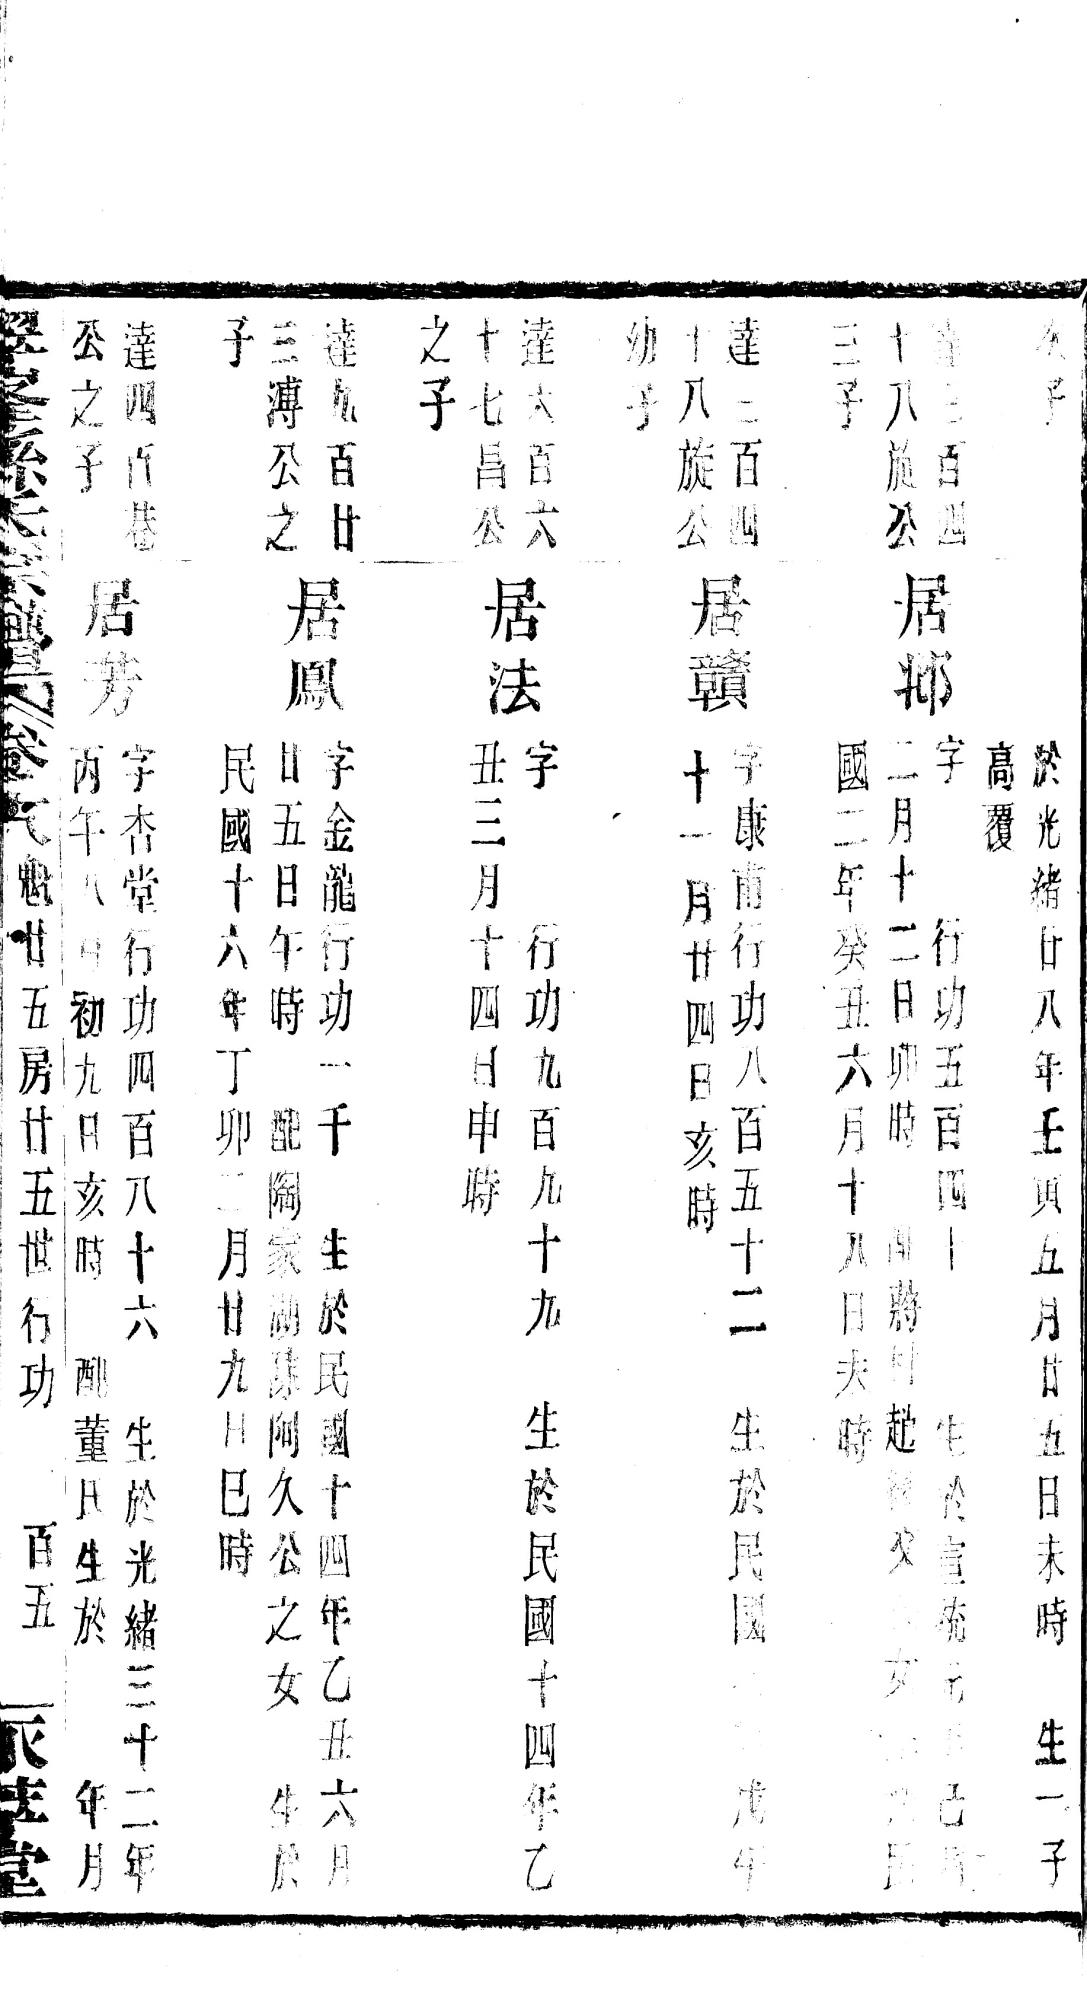 次子
於光緒廿八年壬寅五月廿五日未時　生一子
高覆
達三百四
十八旋公
三子
居邦
字　行功五百四十　生於宣統元年己酉
二月十二日卯時　配蔣村趙　公女　民
國二年癸丑六月十八日未時
達三百四
十八旋公
幼子
居贛
字康甫行功八百五十二　生於民國　戊午
十一月廿四日亥時
達六百六
十七昌公
之子
居法
字　行功九百九十九　生於民國十四年乙
丑三月十四日申時
達九百廿
三溥公之
子
居鳳
字金龍行功一千　生於民國十四年乙丑六月
廿五日午時　配陶家湖陳阿久公之女　生於
民國十六年丁卯二月廿九日巳時
達四百巷
公之子
居芳
字杏堂行功四百八十六　生於光緒三十二年
丙午八月初九日亥時　配董氏生於　年月
魁廿五房廿五世行功　百五